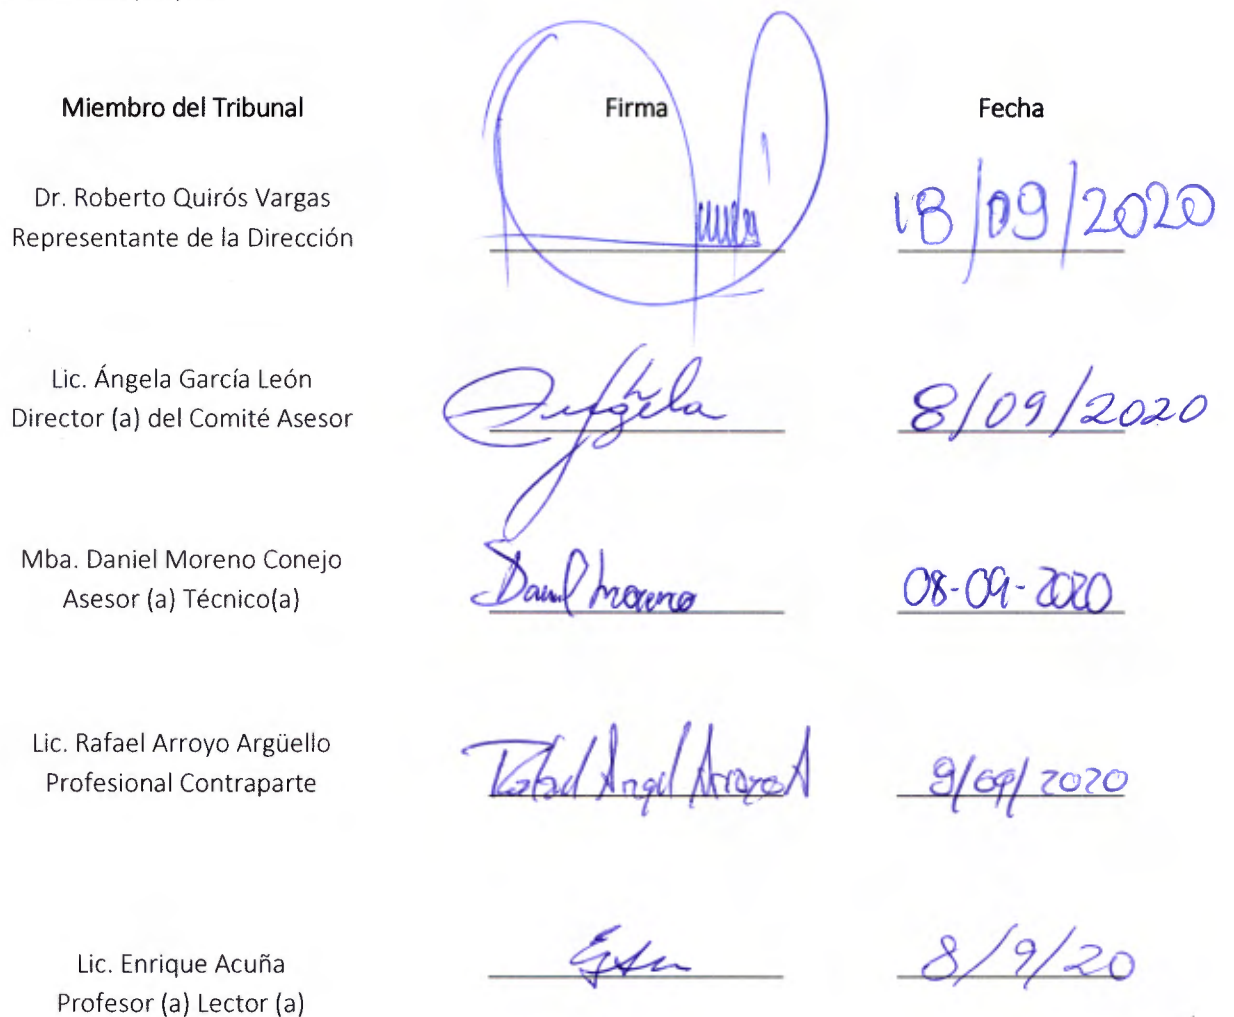 Miembro del Tribunal Firma Fecha
Dr. Roberto Quirós Vargas
Representante de la Dirección 18/09/2020
Lic. Ángela García León
Director (a) del Comité Asesor Ángela 8/09/2020
Mba. Daniel Moreno Conejo
Asesor (a) Técnico(a) Daniel Moreno 08-09-2020
Lic. Rafael Arroyo Argüello
Profesional Contraparte Rafael Angel Arroyo A 9/09/2020
Lic. Enrique Acuña 8/9/20
Profesor (a) Lector (a)